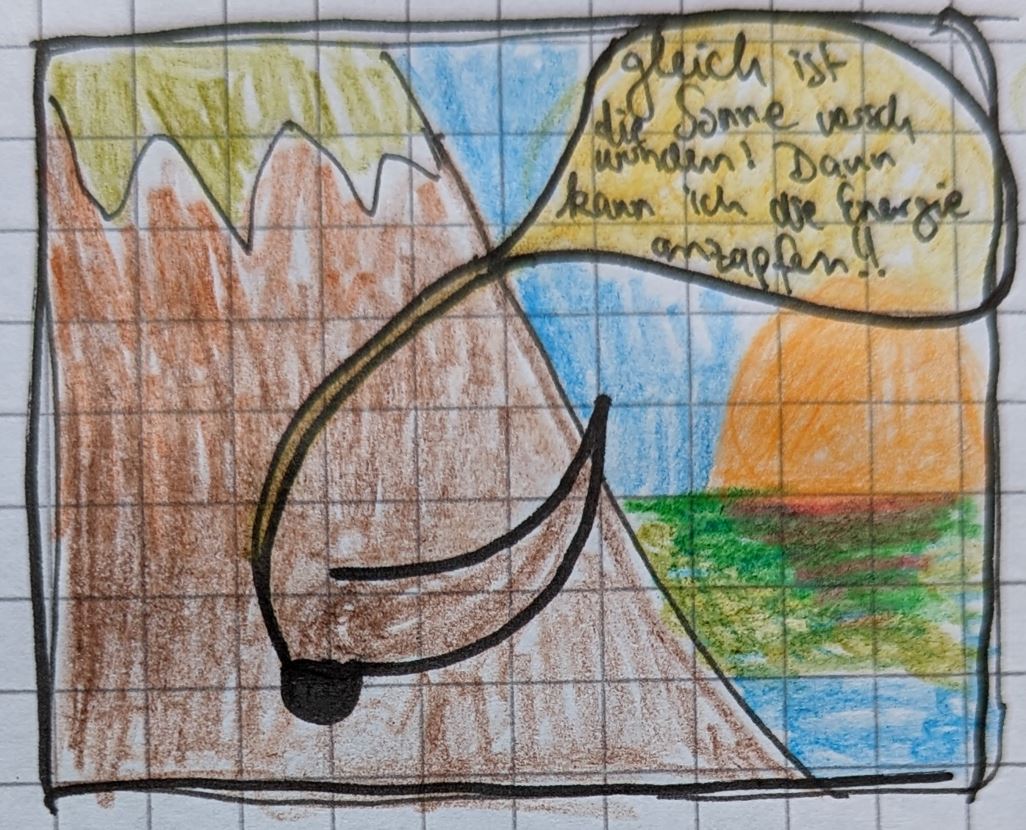 gleich ist
die Sonne versch
wunden! Dann
kann ich die Energie
anzapfen!!